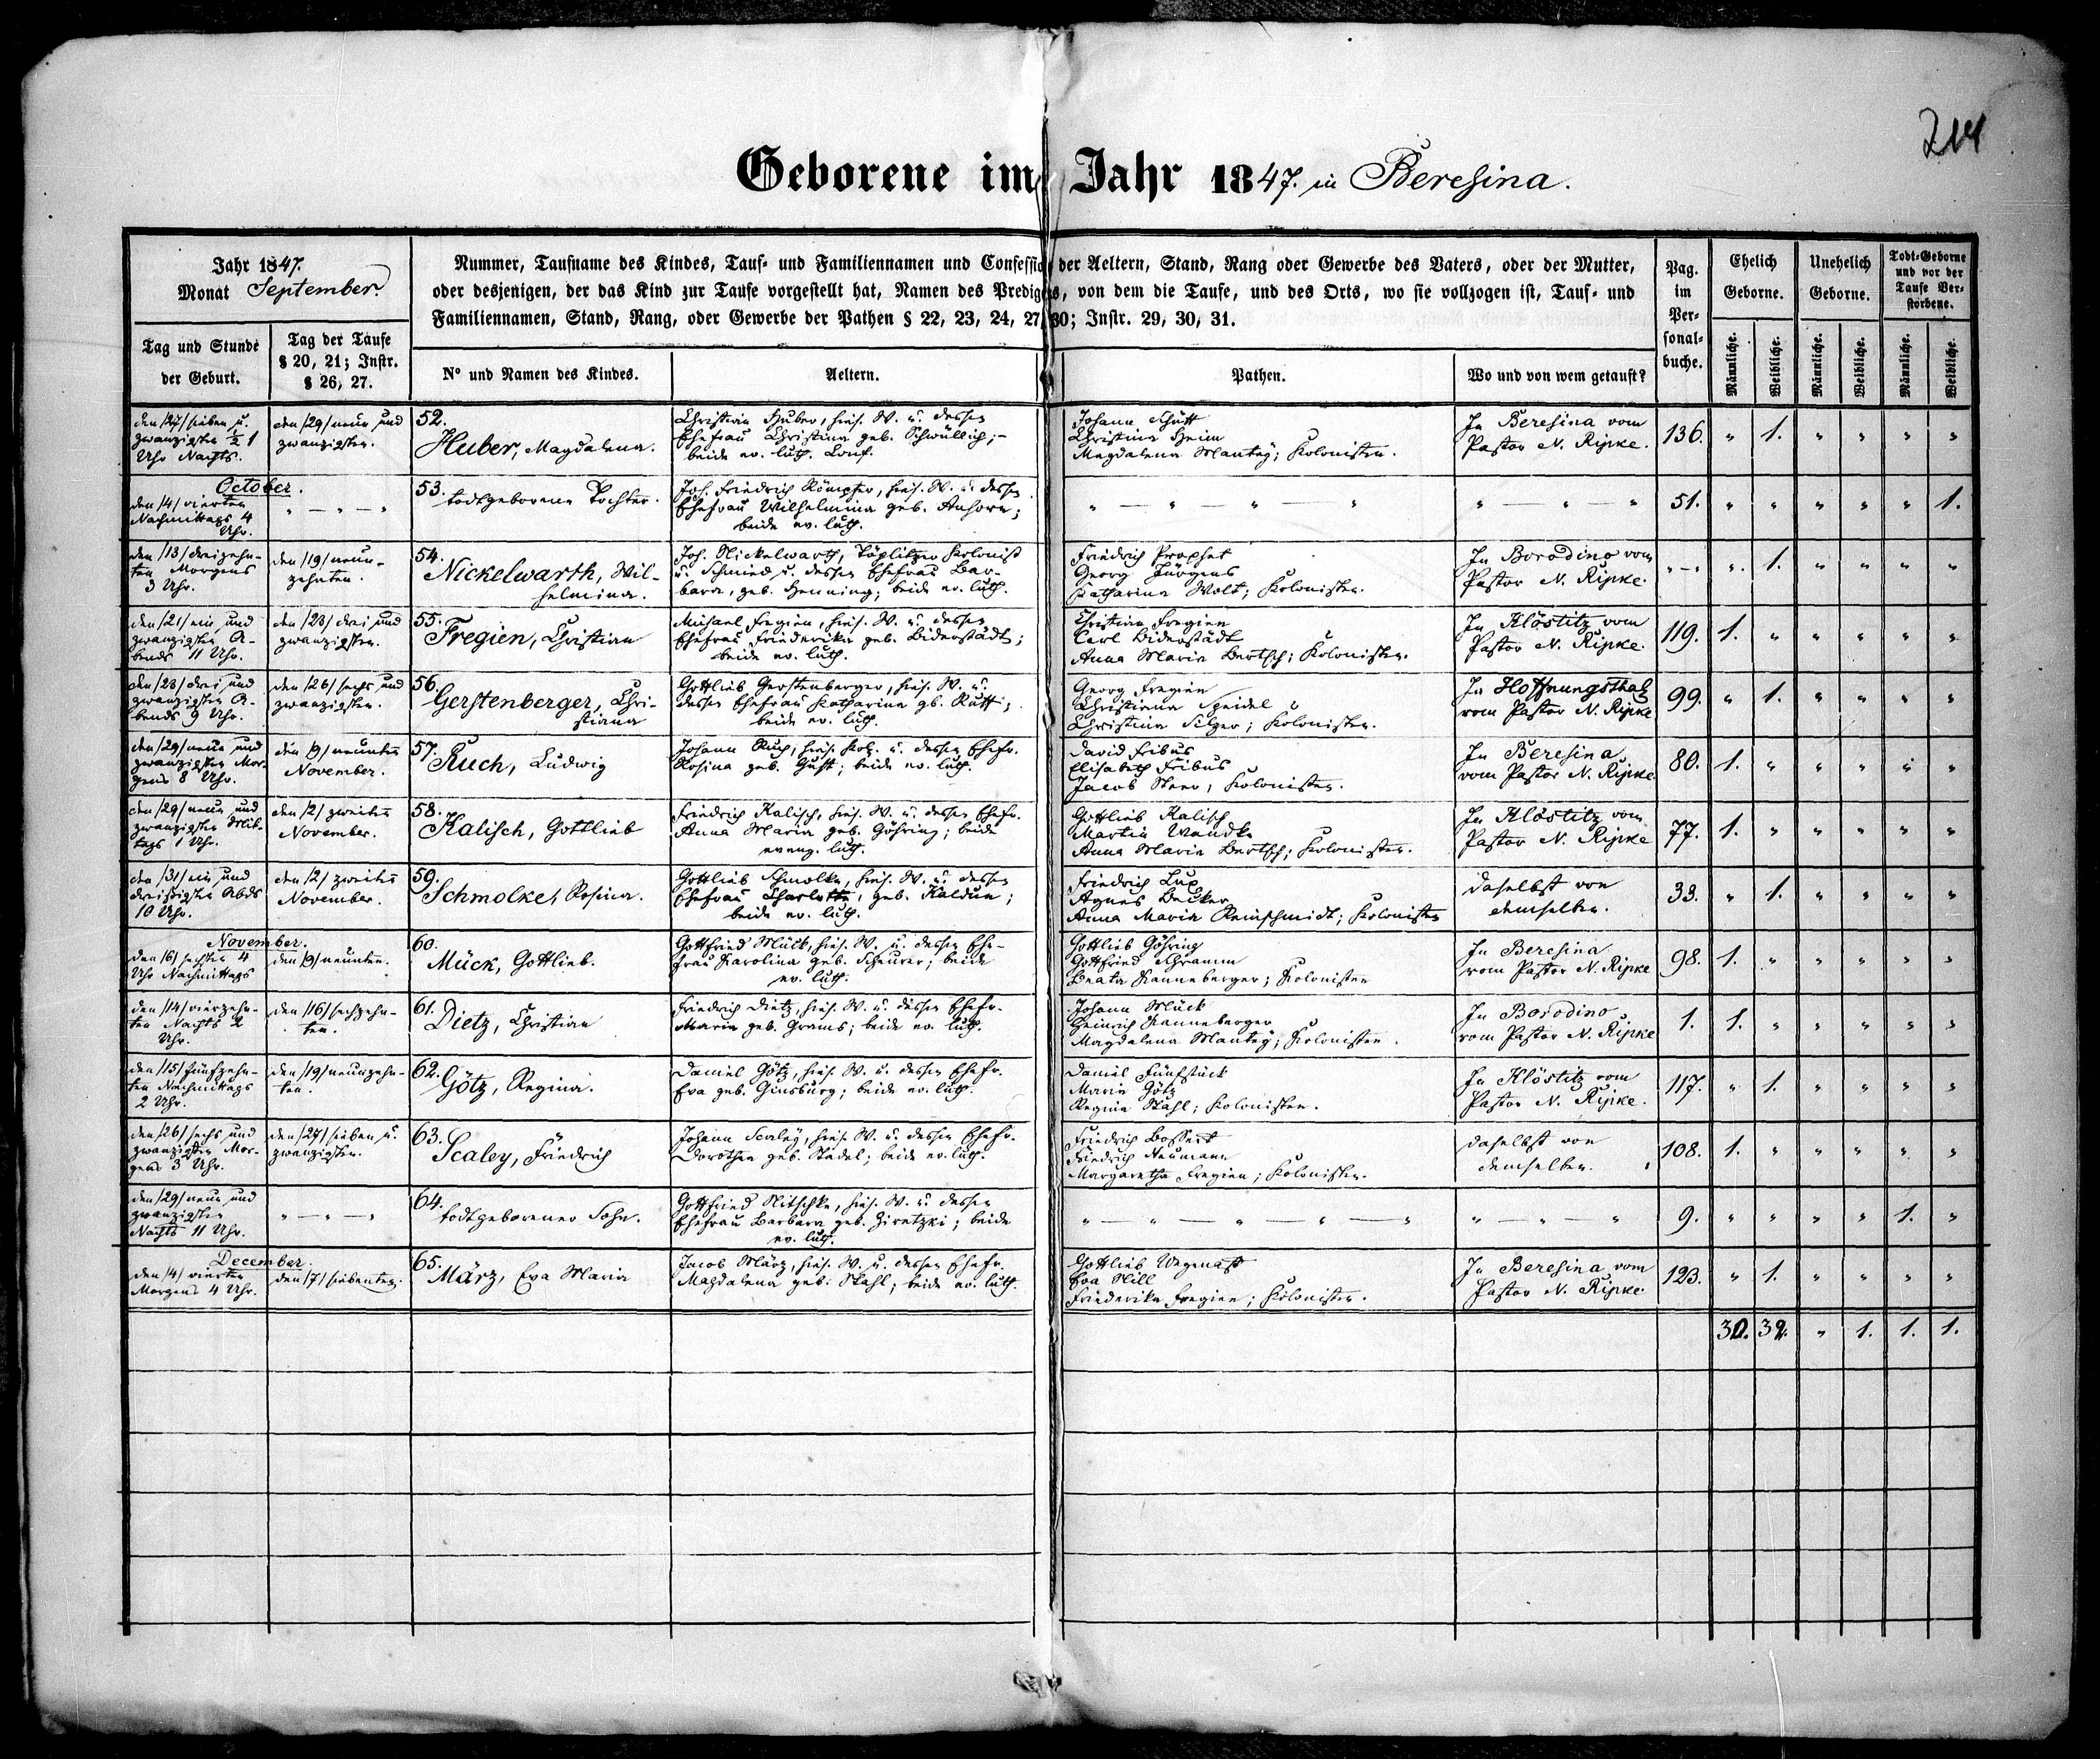 214
Geborene im Jahr 1847. in Beresina.
Jahr 1847.
Monat September.
Tag und Stunde
der Geburt.
Tag der Taufe
§ 20, 21; Instr.
§ 26, 27.
Nummer, Taufname des Kindes, Tauf- und Familiennamen und Confession der Aeltern, Stand, Rang oder Gewerbe des Vaters, oder der Mutter,
oder desjenigen, der das Kind zur Taufe vorgestellt hat, Namen des Predigers, von dem die Taufe, und des Orts, wo sie vollzogen ist, Tauf- und
Familiennamen, Stand, Rang, oder Gewerbe der Pathen § 22, 23, 24, 27, 30; Instr. 29, 30, 31.
N° und Namen des Kindes.
Aeltern.
Pathen.
Wo und von wem getauft?
Pag.
im
Per-
sonal-
buche.
Ehelich
Geborne.
Unehelich
Geborne.
Todt-Geborne
und vor der
Taufe Ver-
storbene.
Männliche.
Weibliche.
Männliche.
Weibliche.
Männliche.
Weibliche.
den /27/ sieben u.
zwanzigsten ½ 1
Uhr Nachts.
den /29/ neun und
zwanzigsten.
52.
Huber, Magdalena.
Christian Huber, hies. W. u. dessen
Ehefrau Christina geb. Schwüllich; -
beide ev. luth. Conf.
Johann Schütt
Christina Heim
Magdalena Mantey; Kolonisten.
In Beresina vom
Pastor N. Ripke.
136. " 1. " " " "
October.
den /4/ vierten
Nachmittags 4
Uhr.
" — " — "
53. todtgeborene Tochter.
Joh. Friedrich Kämpfer, hies. W. u. dessen
Ehefrau Wilhelmina geb. Anhorn;
beide ev. luth.
" — " — " — "
" — " — "
51. " " " " " 1.
den /13/ dreizehn-
ten Morgens
3 Uhr.
den /19/ neun-
zehnten.
54.
Nickelwarth, Wil-
helmina.
Joh. Nickelwarth, Töplitzer Kolonist
u. Schmied u. dessen Ehefrau Bar-
bara, geb. Henning; beide ev. luth.
Friedrich Prophet
Georg Jürgens
Katharina Wolt; Kolonisten.
In Borodino vom
Pastor N. Ripke.
"—" " 1. " " " "
den /21/ ein und
zwanzigsten A-
bends 11 Uhr.
den /23/ drei und
zwanzigsten.
55.
Fregien, Christian
Michael Fregien, hies. W. u. dessen
Ehefrau Friederika geb. Biderstädt;
beide ev. luth.
Christian Fregien
Carl Biderstädt
Anna Maria Bertsch; Kolonisten.
In Klöstitz vom
Pastor N. Ripke.
119. 1. " " " " "
den /23/ drei und
zwanzigsten A-
bends 9 Uhr.
den /26/ sechs und
zwanzigsten.
56.
Gerstenberger, Chri-
stiana
Gottlieb Gerstenberger, hies. W. u.
dessen Ehefrau Katharina gb. Kutti;
beide ev. luth.
Georg Fregien
Christiana Speidel
Christina Silzer; Kolonisten.
In Hoffnungsthal
vom Pastor N. Ripke
99. " 1. " " " "
den /29/ neun und
zwanzigsten Mor-
gens 8 Uhr.
den /9/ neunten
November.
57.
Ruch, Ludwig
Johann Ruch, hies. Kol. u. dessen Ehefr.
Rosina geb. Gust; beide ev. luth.
David Fribus
Elisabeth Fribus
Jacob Steer, Kolonisten.
In Beresina
vom Pastor N. Ripke
80. 1. " " " " "
den /29/ neun und
zwanzigsten Mit-
tags 1 Uhr.
den /2/ zweiten
November.
58.
Kalisch, Gottlieb
Friedrich Kalisch, hies. W. u. dessen Ehefr.
Anna Maria geb. Göhring; beide
evang. luth.
Gottlieb Kalisch
Martin Wandke
Anna Maria Bertsch; Kolonisten.
In Klöstitz vom
Pastor N. Ripke
77. 1. " " " " "
den /31/ ein und
dreißigsten Abds
10 Uhr.
den /2/ zweiten
November.
59.
Schmolke, Rosina.
Gottlieb Schmolke, hies. W. u. dessen
Ehefrau Charlotte, geb. Kaldun;
beide ev. luth.
Friedrich Lux
Agnes Becker
Anna Maria Reinschmidt; Kolonisten
daselbst von
demselben.
33. " 1. " " " "
November.
den /6/ sechsten 4
Uhr Nachmittags
den /9/ neunten.
60.
Mück, Gottlieb.
Gottfried Mück, hies. W. u. dessen Ehe-
frau Karolina geb. Scheurer; beide
ev. luth.
Gottlieb Göhring
Gottfried Schramm
Beata Kanneberger; Kolonisten
In Beresina
vom Pastor N. Ripke
98. 1. " " " " "
den /14/ vierzehn-
ten Nachts 2
Uhr.
den /16/ sechzehn-
ten.
61.
Dietz, Christian
Friedrich Dietz, hies. W. u. dessen Ehefr.
Maria geb. Grams; beide ev. luth.
Johann Mück
Heinrich Kanneberger
Magdalena Mantey; Kolonisten.
In Borodino
vom Pastor N. Ripke
1. 1. " " " " "
den /15/ fünfzehn-
ten Nachmittags
2 Uhr.
den /19/ neunzehn-
ten.
62.
Götz, Regina.
Daniel Götz, hies. W. u. dessen Ehefr.
Eva geb. Ginsburg; beide ev. luth.
Daniel Fünfstück
Maria Götz
Regina Stahl; Kolonisten.
In Klöstitz vom
Pastor N. Ripke.
117. " 1. " " " "
den /26/ sechs und
zwanzigsten Mor-
gens 3 Uhr.
den /27/ sieben u.
zwanzigsten.
63.
Scaley, Friedrich
Johann Scaley, hies. W. u. dessen Ehefr.
Dorothea geb. Stadel; beide ev. luth.
Friedrich Bossert
Friedrich Neumann
Margaretha Fregien; Kolonisten.
daselbst von
demselben.
108. 1. " " " " "
den /29/ neun und
zwanzigsten
Nachts 11 Uhr.
" — " — "
64.
todtgeborener Sohn.
Gottfried Nitschke, hies. W. u. dessen
Ehefrau Barbara geb. Ziretzki; beide
ev. luth.
" — " — " — " — "
" — " — "
9. " " " " 1. "
December.
den /4/ vierten
Morgens 4 Uhr.
den /7/ siebenten.
65.
März, Eva Maria
Jacob März, hies. W. u. dessen Ehefr.
Magdalena geb. Stahl; beide ev. luth.
Gottlieb Wegmast
Eva Nill
Friederika Fregien; Kolonisten.
In Beresina vom
Pastor N. Ripke.
123. " 1. " " " "
30. 32. " 1. 1. 1.